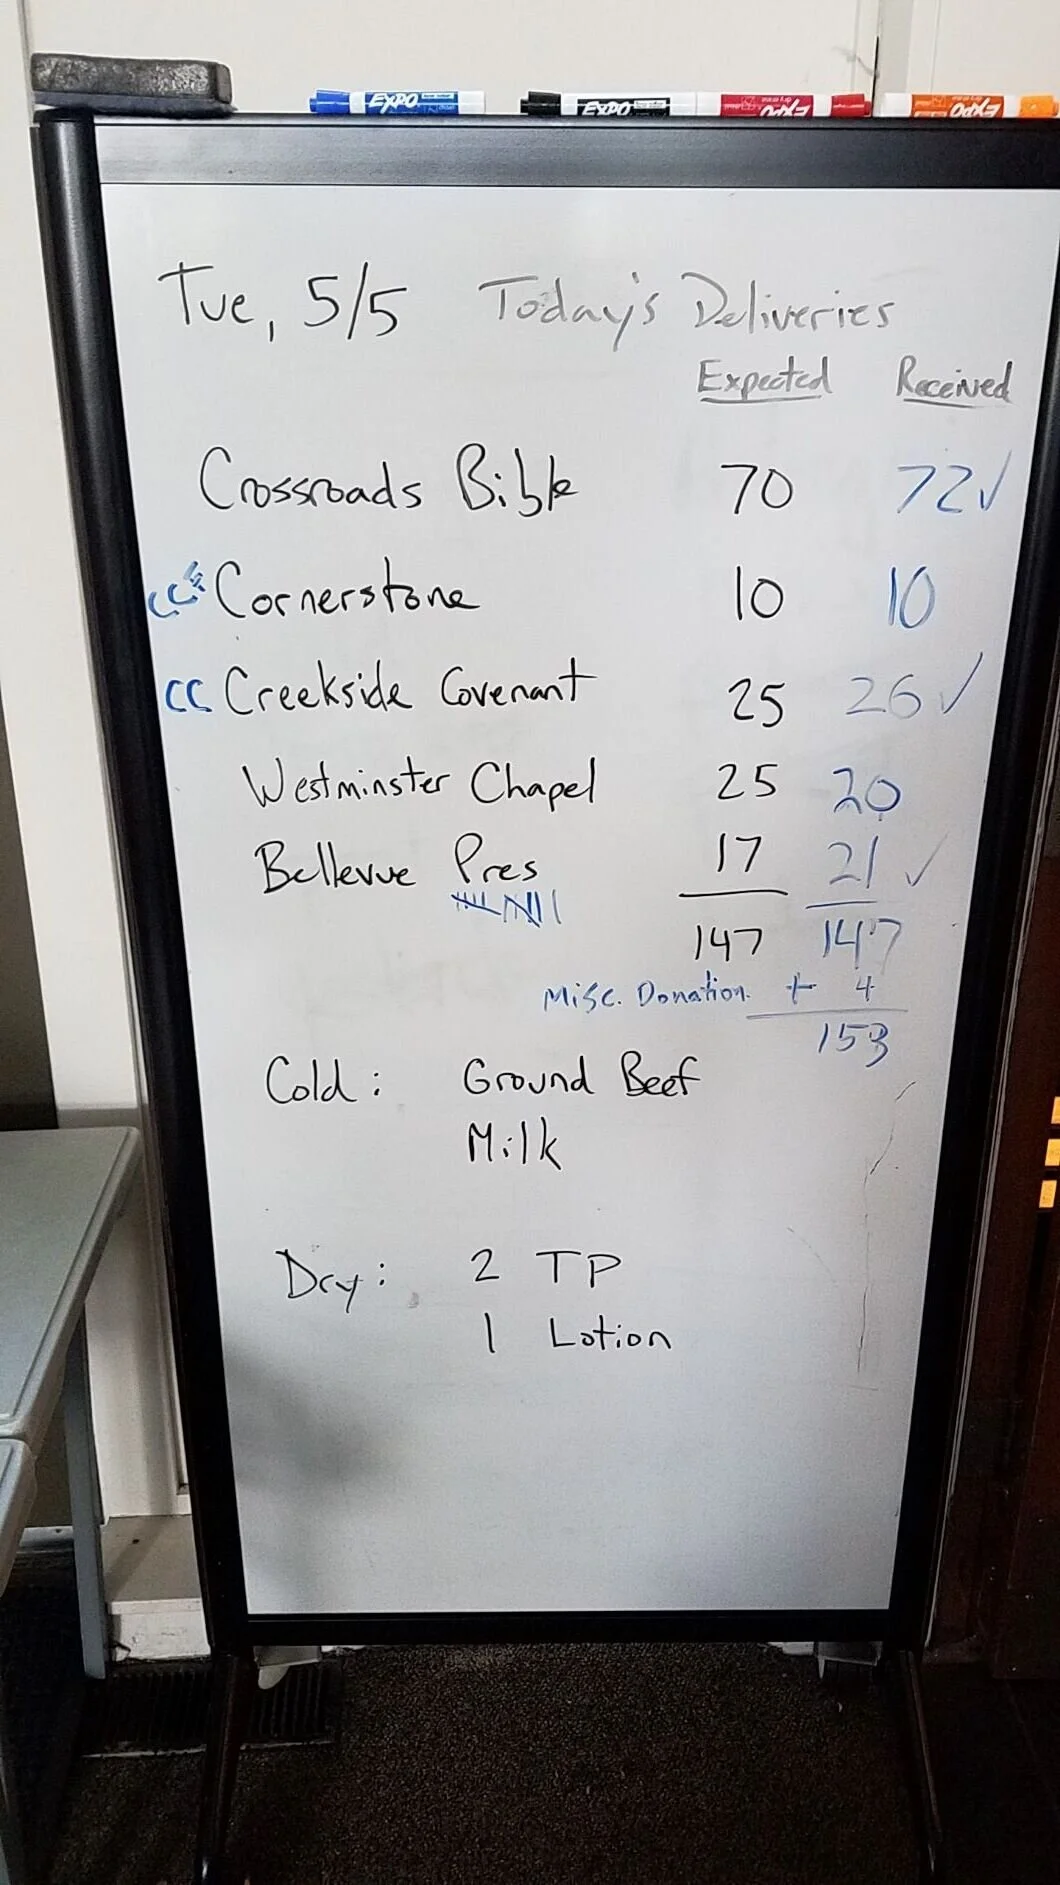 EXPO EXPO EXPO EXPO
Tue, 5/5 Today's Deliveries
Expected Received
Crossroads Bible 70 72 ✓
Cornerstone 10 10
CC Creekside Covenant 25 26 ✓
Westminster Chapel 25 20
Bellevue Pres 17 21 ✓
147 147
Misc. Donation + 4
153
Cold: Ground Beef
Milk
Dry: 2 TP
1 Lotion